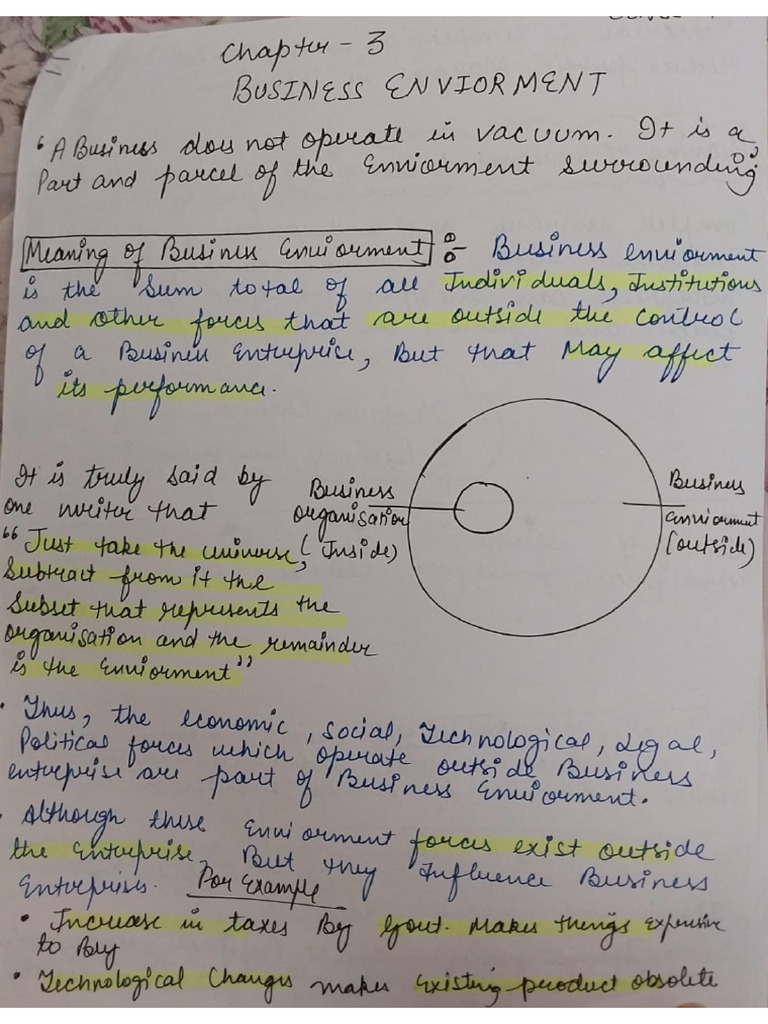 Chapter - 3
BUSINESS ENVIORMENT
" A Business does not operate in vacuum. It is a
Part and parcel of the Enviorment surrounding"
Meaning of Business Enviorment :- Business enviorment
is the Sum total of all Individuals, Institutions
and other forces that are outside the control
of a Business Enterprise, But that May affect
its performance.
It is truly said by
one writer that
"Just take the universe,
Subtract from it the
Subset that represents the
organisation and the remainder
is the Enviorment"
Business
organisation
(Inside)
Business
Enviorment
(outside)
• Thus, the economic, social, Technological, Legal,
Political forces which operate outside Business
enterprise are part of Business Enviorment.
• Although these Enviorment forces exist outside
the Enterprise, But they Influence Business
Enterprises. For Example
• Increase in taxes By Govt. Makes things Expensive
to Buy
• Technological Changes makes Existing product obsolete